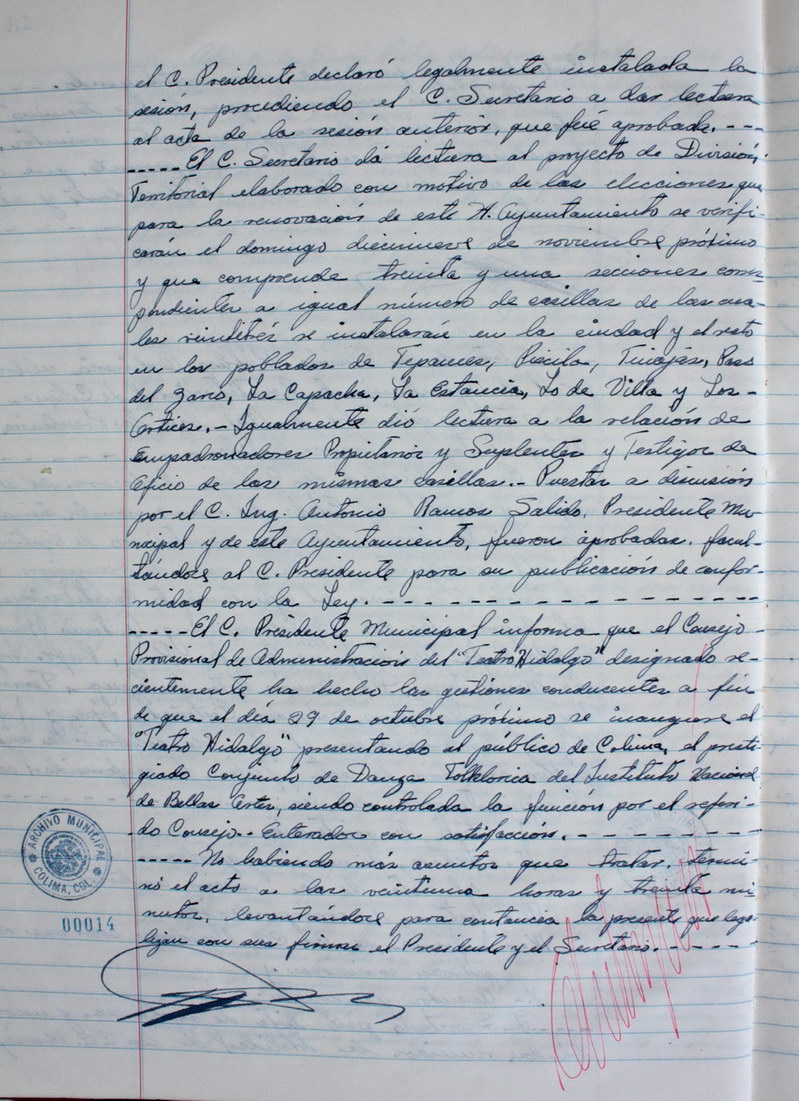 el C. Presidente declaró legalmente instalada la
sesión, procediendo el C. Secretario a dar lectura
al acta de la sesión anterior, que fué aprobada. - - -
- - - - - El C. Secretario dá lectura al proyecto de División
Territorial elaborado con motivo de las elecciones que
para la renovación de este H. Ayuntamiento se verifi-
carán el domingo diecinueve de noviembre próximo
y que comprende treinta y una secciones corres-
pondientes a igual número de casillas de las cua-
les veintitrés se instalarán en la ciudad y el resto
en los poblados de Tepames, Piscila, Tinajas, Paso
del Zarco, La Capacha, La Estancia, Lo de Villa y Los-
Ortices.- Igualmente dió lectura a la relación de
Empadronadores Propietarios y Suplentes y Testigos de
Oficio de las mismas casillas.- Puestas a discusión
por el C. Ing. Antonio Ramos Salido, Presidente Mu-
nicipal y de este Ayuntamiento, fueron aprobadas, facul-
tándose al C. Presidente para su publicación de confor-
midad con la Ley. - - - - - - - - - - - - - - -
- - - - - El C. Presidente Municipal informa que el Consejo-
Provisional de Administración del "Teatro Hidalgo" designado re-
cientemente ha hecho las gestiones conducentes a fin
de que el día 29 de octubre próximo se inaugure el
"Teatro Hidalgo" presentando al público de Colima, el presti-
giado Conjunto de Danza Folklorica del Instituto Nacional
de Bellas Artes, siendo controlada la función por el referi-
do Consejo.- Enterados con satisfacción. - - - - - - - -
- - - - - No habiendo más asuntos que tratar, termi-
nó el acto a las veintiuna horas y treinta mi-
nutos, levantándose para contancia la presente que lega-
lizan con sus firmas el Presidente y el Secretario. - - - - -
ARCHIVO MUNICIPAL
COLIMA, COL.
00014